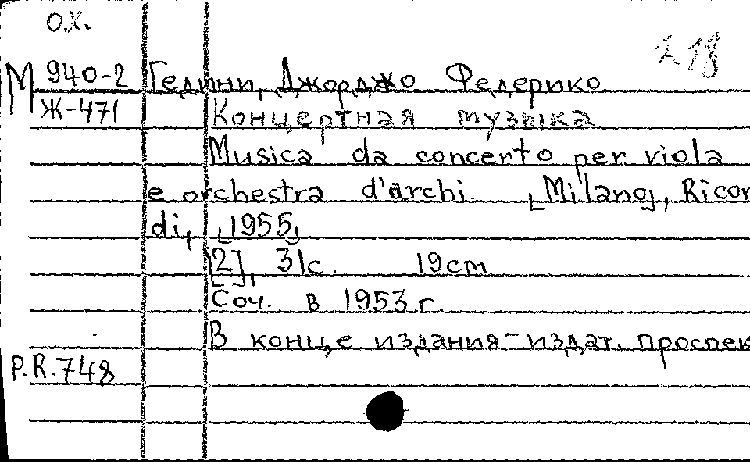 О.Х.
218
М 940-2 Гедини, Джорджо Федерико
Ж-471 Концертная музыка
Musica da concerto per viola
e orchestra d'archi [Milano], Ricor
di, [1955]
[2], 31с. 19cm
Соч. в 1953 г.
В конце издания - издат. проспек
P.R.748